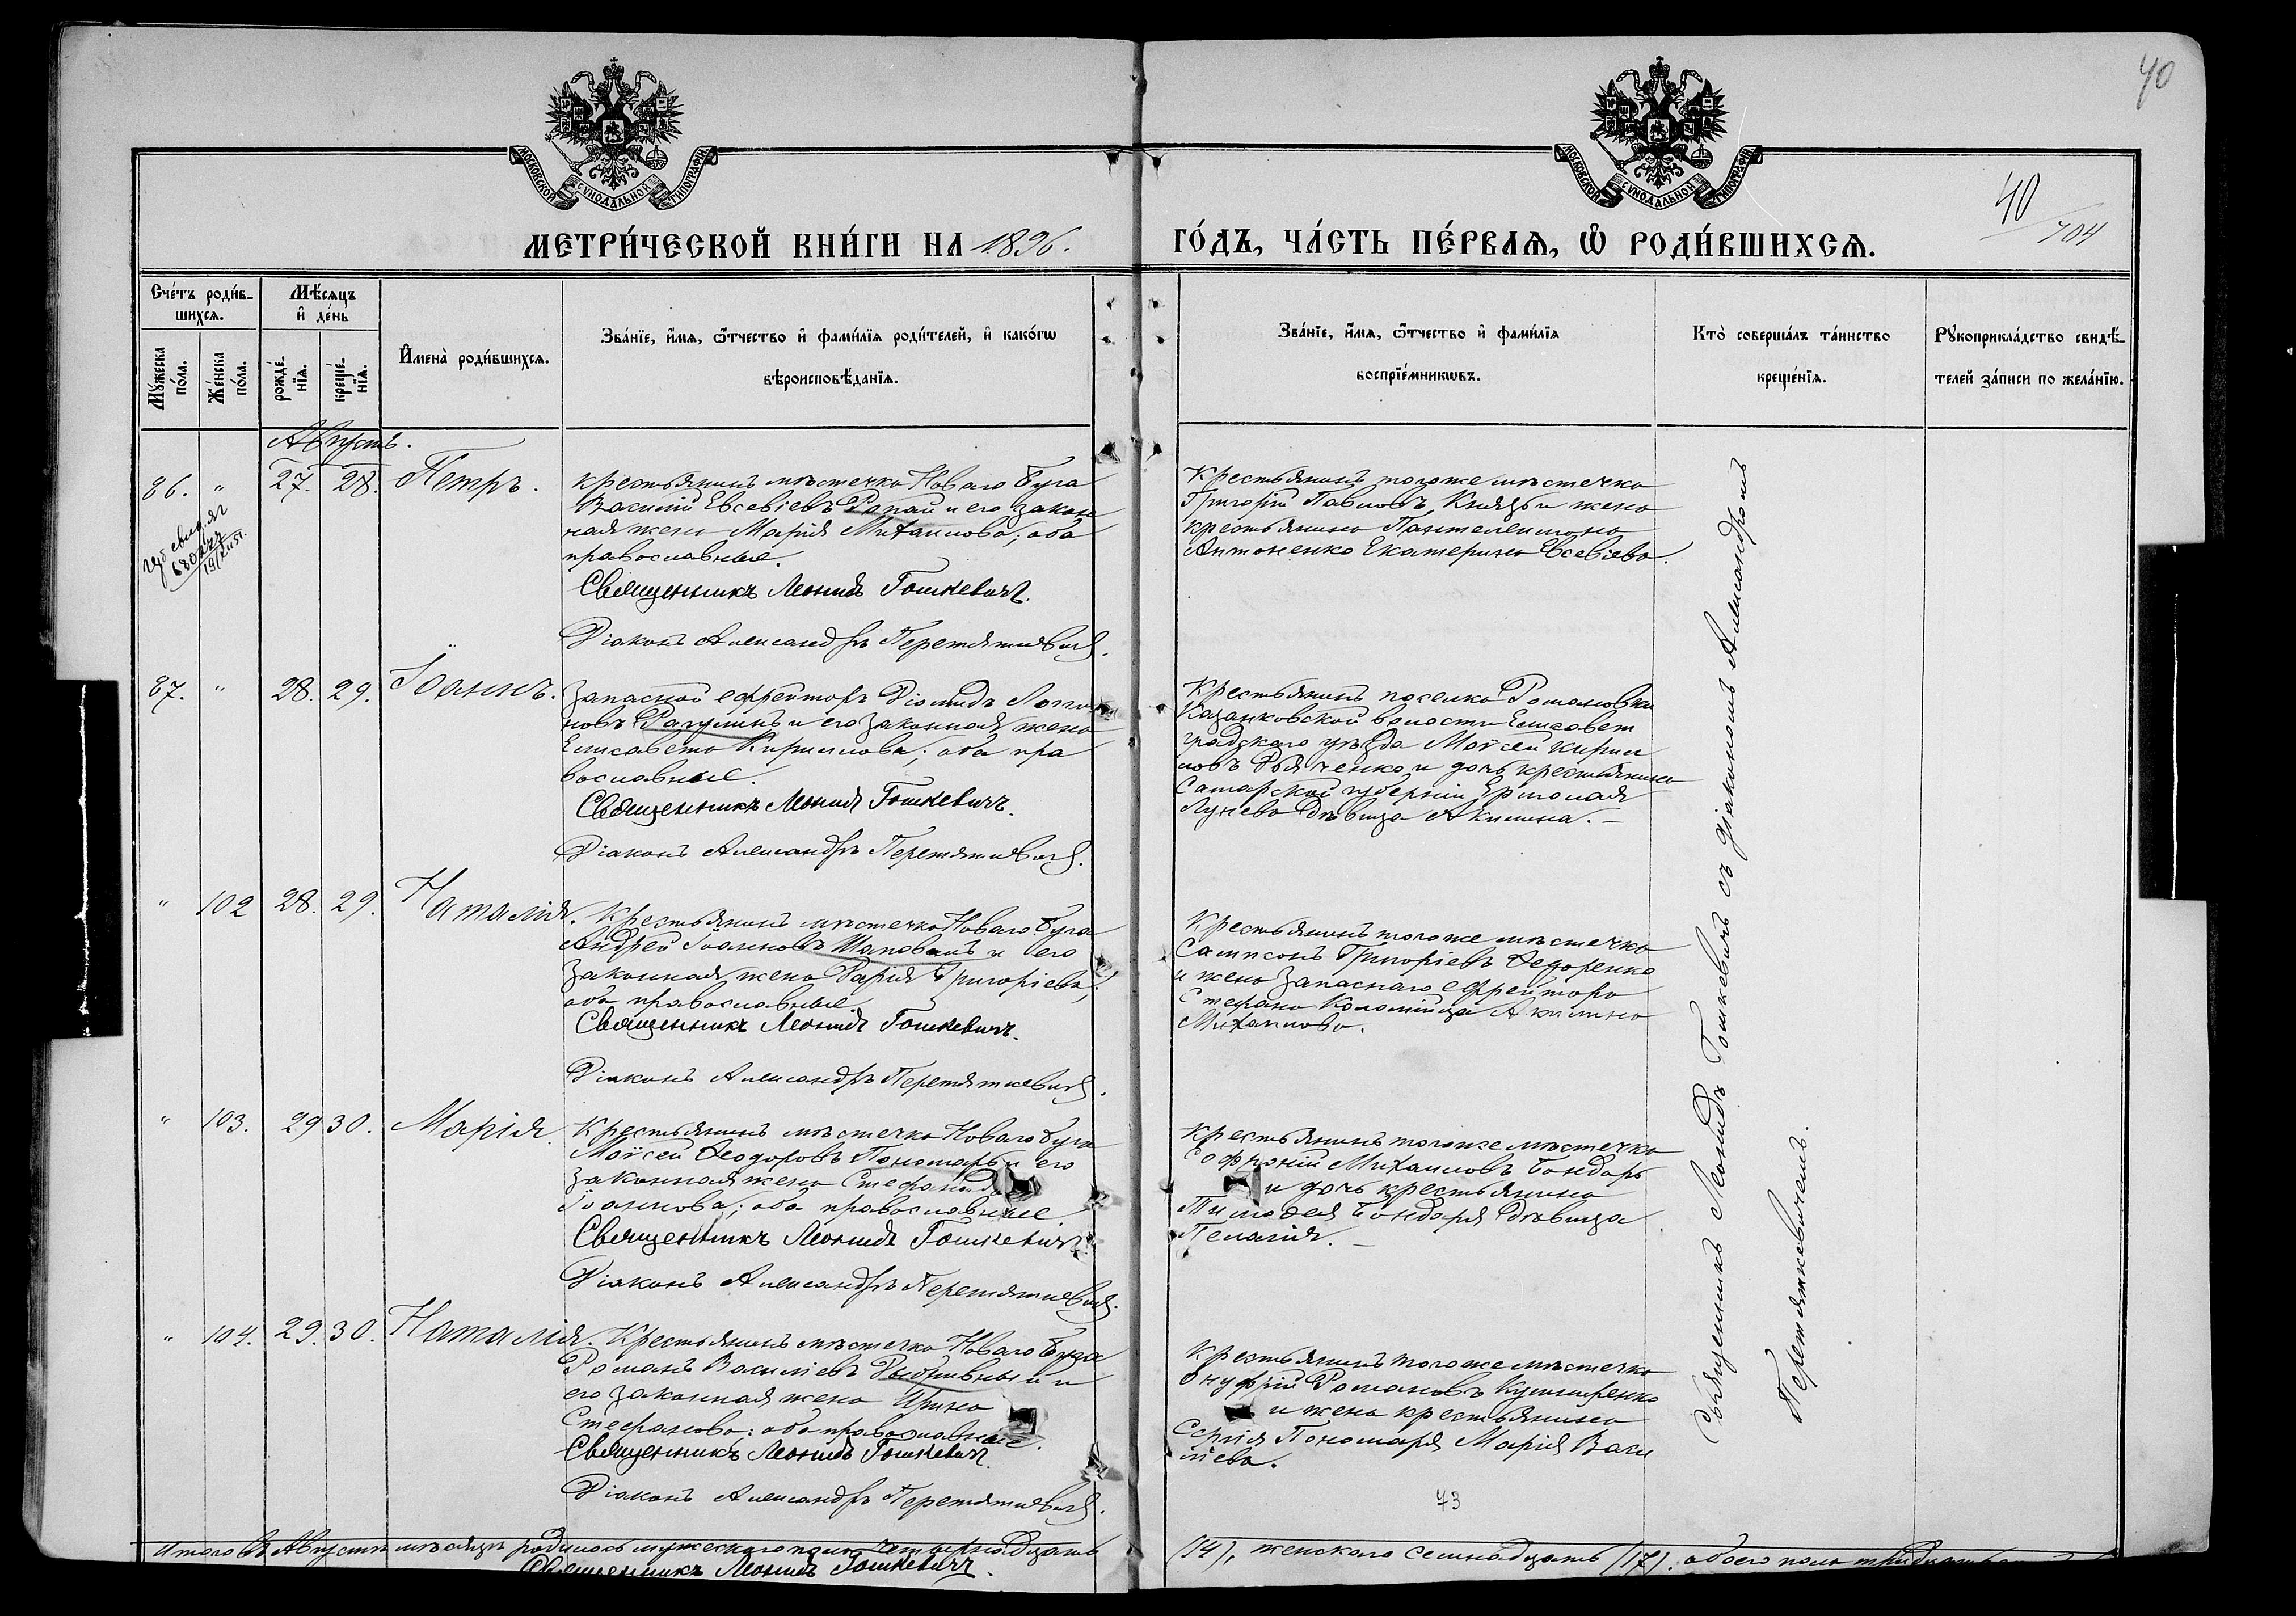 40
МОСКОВСКОЙ СѴНОДАЛЬНОЙ ТИПОГРАФІИ.
МОСКОВСКОЙ СѴНОДАЛЬНОЙ ТИПОГРАФІИ.
40/704
МЕТРИ́ЧЕСКОЙ КНИ́ГИ НА 1896. ГО́ДЪ, ЧА́СТЬ ПЕ́РВАѦ, Ѽ РОДИ́ВШИХСѦ.
Сче́тъ роди́в-
шихсѧ.
Мѣ́сѧцъ
и҆ де́нь
Мꙋ́жеска
по́ла.
Же́нска
по́ла.
рожде́-
нїѧ.
креще́-
нїѧ.
И҆мена̀ роди́вшихсѧ.
Зва́нїе, и҆́мѧ, ѻ҆́тчество и҆ фами́лїѧ роди́телей, и҆ како́гѡ
вѣроисповѣ́данїѧ.
Зва́нїе, и҆́мѧ, ѻ҆́тчество и҆ фами́лїѧ
воспрїе́мникѡвъ.
Кто̀ соверша́лъ та́инство
креще́нїѧ.
Рꙋкоприкла́дство свидѣ́-
телей за́писи по жела́нїю.
Августъ.
86. " 27. 28. Петръ.
крестьянинъ мѣстечка Новаго Буга
Василій Евсевіевъ Рапай и его закон
ная жена Марія Михаилова; оба
православные.
Священникъ Леонидъ Гошкевичъ.
Діаконъ Александръ Перетяткевичъ.
Крестьянинъ тогоже мѣстечка
Григорій Павловъ Князь и жена
крестьянина Пантелеимона
Антоненко Екатерина Евсевіева.
87. " 28. 29. Іоаннъ.
Запасной ефрейторъ Діомидъ Логи
новъ и его законная жена
Елисавета Кириллова; оба пра
вославные.
Священникъ Леонидъ Гошкевичъ.
Діаконъ Александръ Перетяткевичъ.
Крестьянинъ поселка Романовки
Казанковской волости Елисавет
градскаго уѣзда Моѵсей Кирил
ловъ Дьяченко и дочь крестьянина
Самарской губерніи Ермолая
Лунева дѣвица Акилина.
" 102 28. 29. Наталія.
Крестьянинъ мѣстечка Новаго Буга
Андрей Іоанновъ Шаповалъ и его
законная жена Дарія Григоріева;
оба православные.
Священникъ Леонидъ Гошкевичъ.
Діаконъ Александръ Перетяткевичъ.
Крестьянинъ тогоже мѣстечка
Сампсонъ Григоріевъ Ѳедоренко
и жена запаснаго ефрейтора
Стефана Коломійца Акилина
Михаилова.
" 103. 29 30. Марія.
Крестьянинъ мѣстечка Новаго Буга
Моѵсей Ѳеодоровъ Пономарь и его
законная жена Стефанида
Іоаннова; оба православные.
Священникъ Леонидъ Гошкевичъ.
Діаконъ Александръ Перетяткевичъ.
Крестьянинъ тогоже мѣстечка
Софроній Михаиловъ Бондарь
и дочь крестьянина
Тимоѳея Бондаря дѣвица
Пелагія.
" 104. 29. 30. Наталія.
Крестьянинъ мѣстечка Новаго Буга
Романъ Василіевъ и
его законная жена Ирина
Стефанова; оба православные.
Священникъ Леонидъ Гошкевичъ.
Діаконъ Александръ Перетяткевичъ.
Крестьянинъ тогоже мѣстечка
Онуфрій Романовъ Кушниренко
и жена крестьянина
Сергія Пономаря Марія Васи
ліева.
73
Священникъ Леонидъ Гошкевичъ съ діакономъ Александромъ
Перетяткевичемъ.
Итого въ Августѣ мѣсяцѣ родилось мужескаго пола четырнадцать (14), женскаго семнадцать (17). обоего пола тридцать
Священникъ Леонидъ Гошкевичъ.